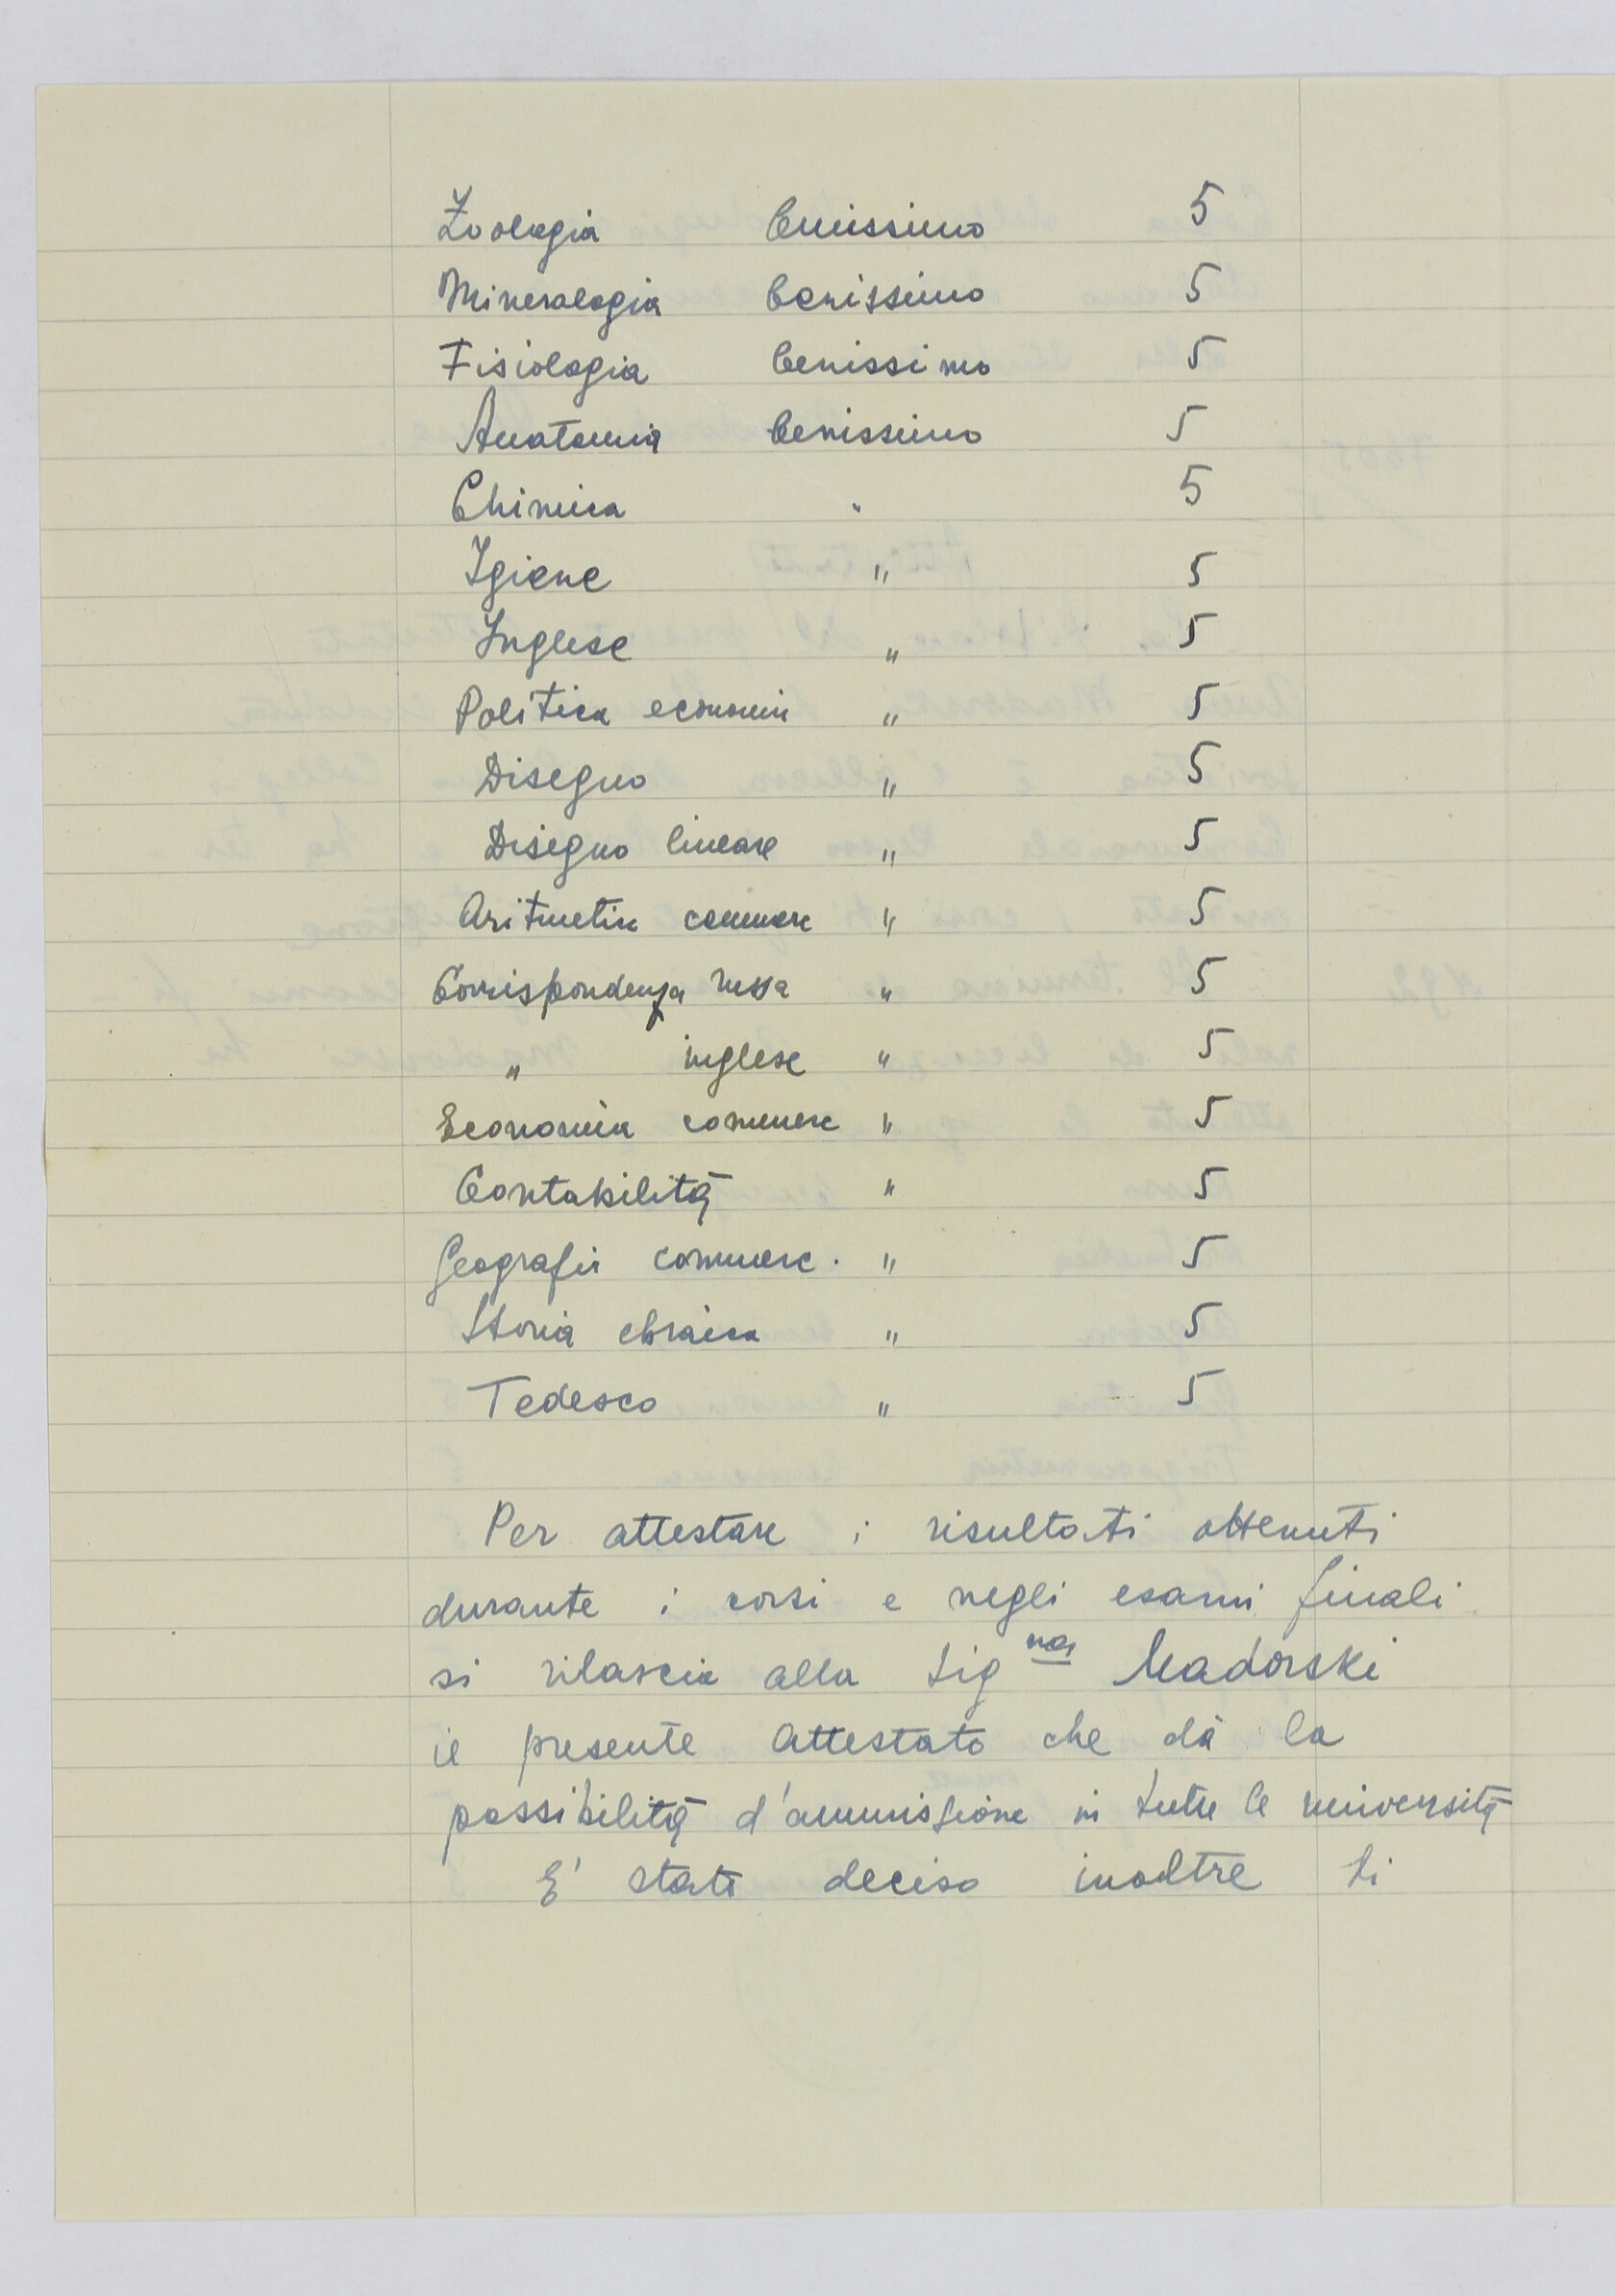 Zoologia benissimo 5
Mineralogia benissimo 5
Fisiologia benissimo 5
Anatomia benissimo 5
Chimica " 5
Igiene " 5
Inglese " 5
Politica economia " 5
Disegno " 5
Disegno lineare " 5
Aritmetica commerc " 5
Corrispondenza russa " 5
" inglese " 5
Economia commerc " 5
Contabilità " 5
Geografia commerc. " 5
Storia ebraica " 5
Tedesco " 5
Per attestare i risultati ottenuti
durante i corsi e negli esami finali
si rilascia alla Sig na Madorski
il presente attestato che dà la
possibilità d'ammissione in tutte le università
E' stato deciso inoltre di